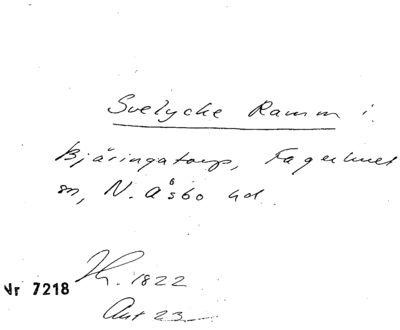 Svelycke Ramm i
Bjäringatorp, Fagerhult
sn, N. Åsbo hd.
Nr 7218
1822
Ant 23